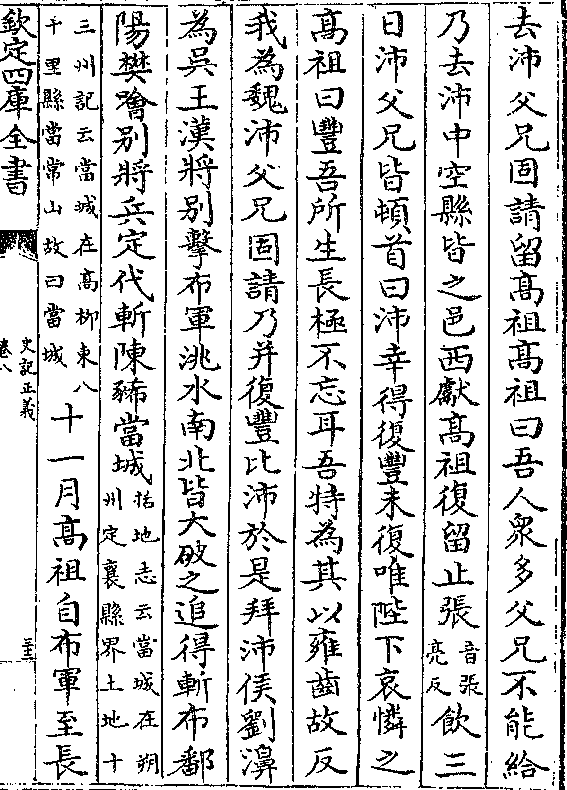 去沛父兄固請留髙祖髙祖曰吾人衆多父兄不能給
乃去沛中空縣皆之邑西獻髙祖復留止張音張亮反飲三
日沛父兄皆頓首曰沛幸得復豐未復唯陛下哀憐之
髙祖曰豐吾所生長極不忘耳吾特為其以雍齒故反
我為魏沛父兄固請乃并復豐比沛於是拜沛侯劉濞
為吳王漢將别擊布軍洮水南北皆大破之追得斬布鄱
陽樊噲别將兵定代斬陳豨當城括地志云當城在朔州定襄縣界土地十
三州記云當城在髙柳東八千里縣當常山故曰當城十一月髙祖自布軍至長
欽定四庫全書
史記正義
卷八